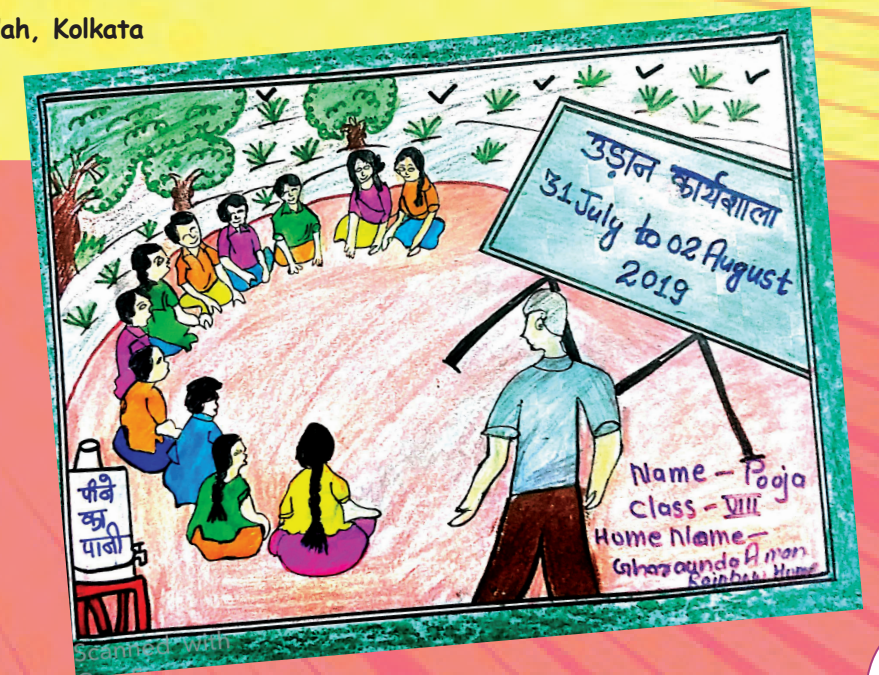 ah, Kolkata
उड़ान कार्यशाला
31 July to 02 August
2019
पीने
का
पानी
Name - Pooja
Class - VIII
Home Name -
Gharaunda Aman
Rainbow Home
Scanned with